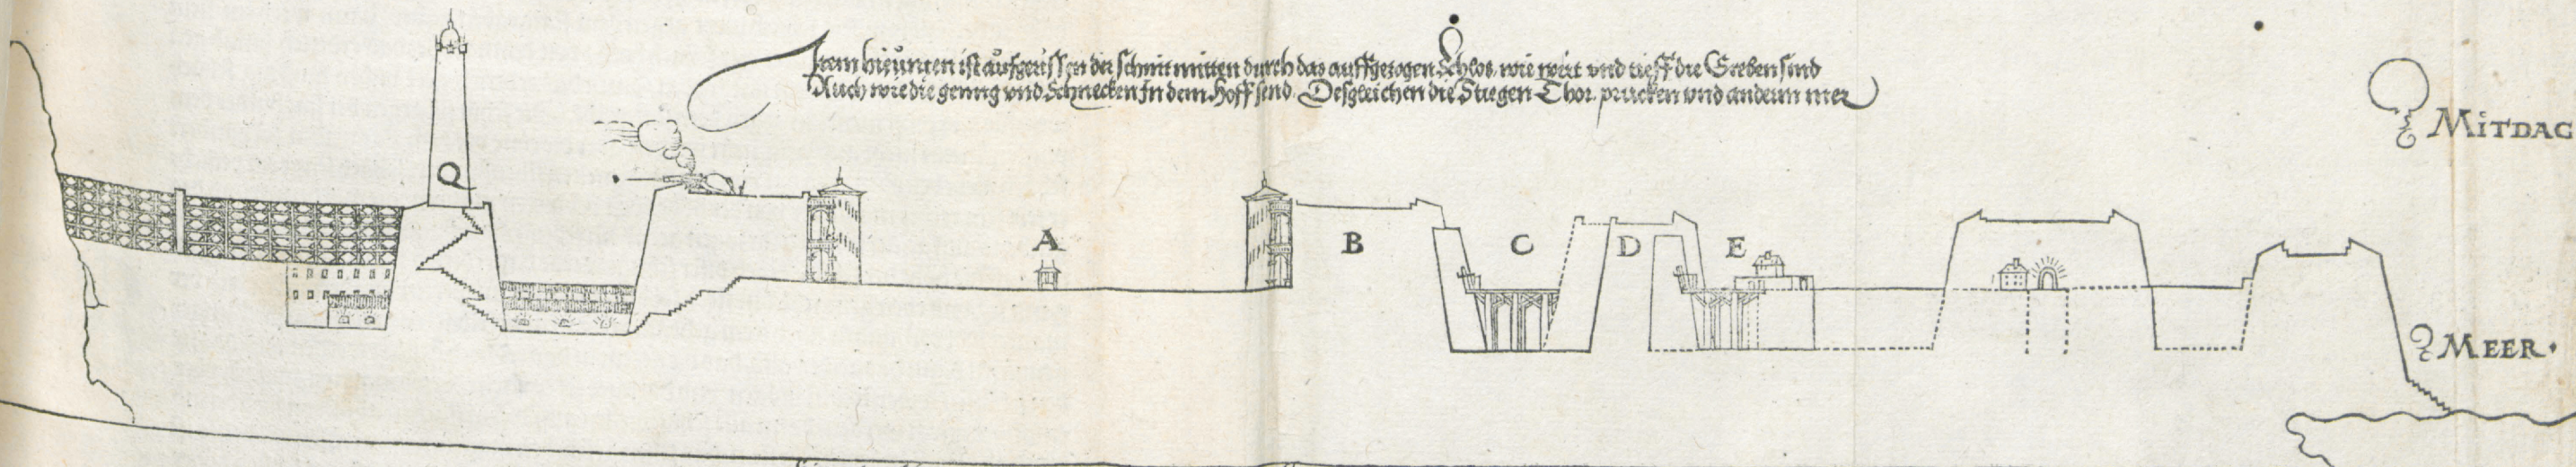 Item hieunten ist aufgerissen der schnit mitten durch das auffgezogen Schlos. wie weit vnd tieff die Greben sind
Auch wie die geng vnd Schnecken Jn dem Hoff send. Desgleichen die Stiegen Thor. prucken vnd anderm mer
MITDAG
Q
A
B
C
D
E
MEER.